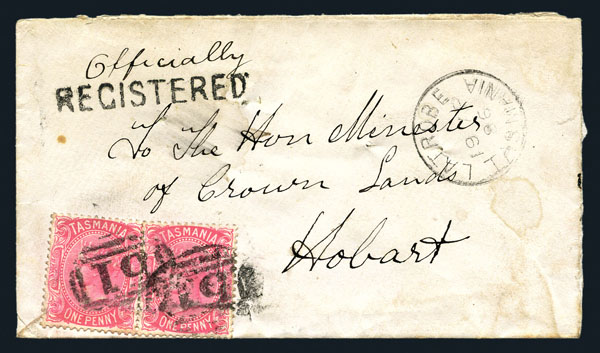 Officially
REGISTERED
To The Hon Minester
of Crown Lands
Hobart
LATROBE
TASMANIA
ONE PENNY
TASMANIA
ONE PENNY